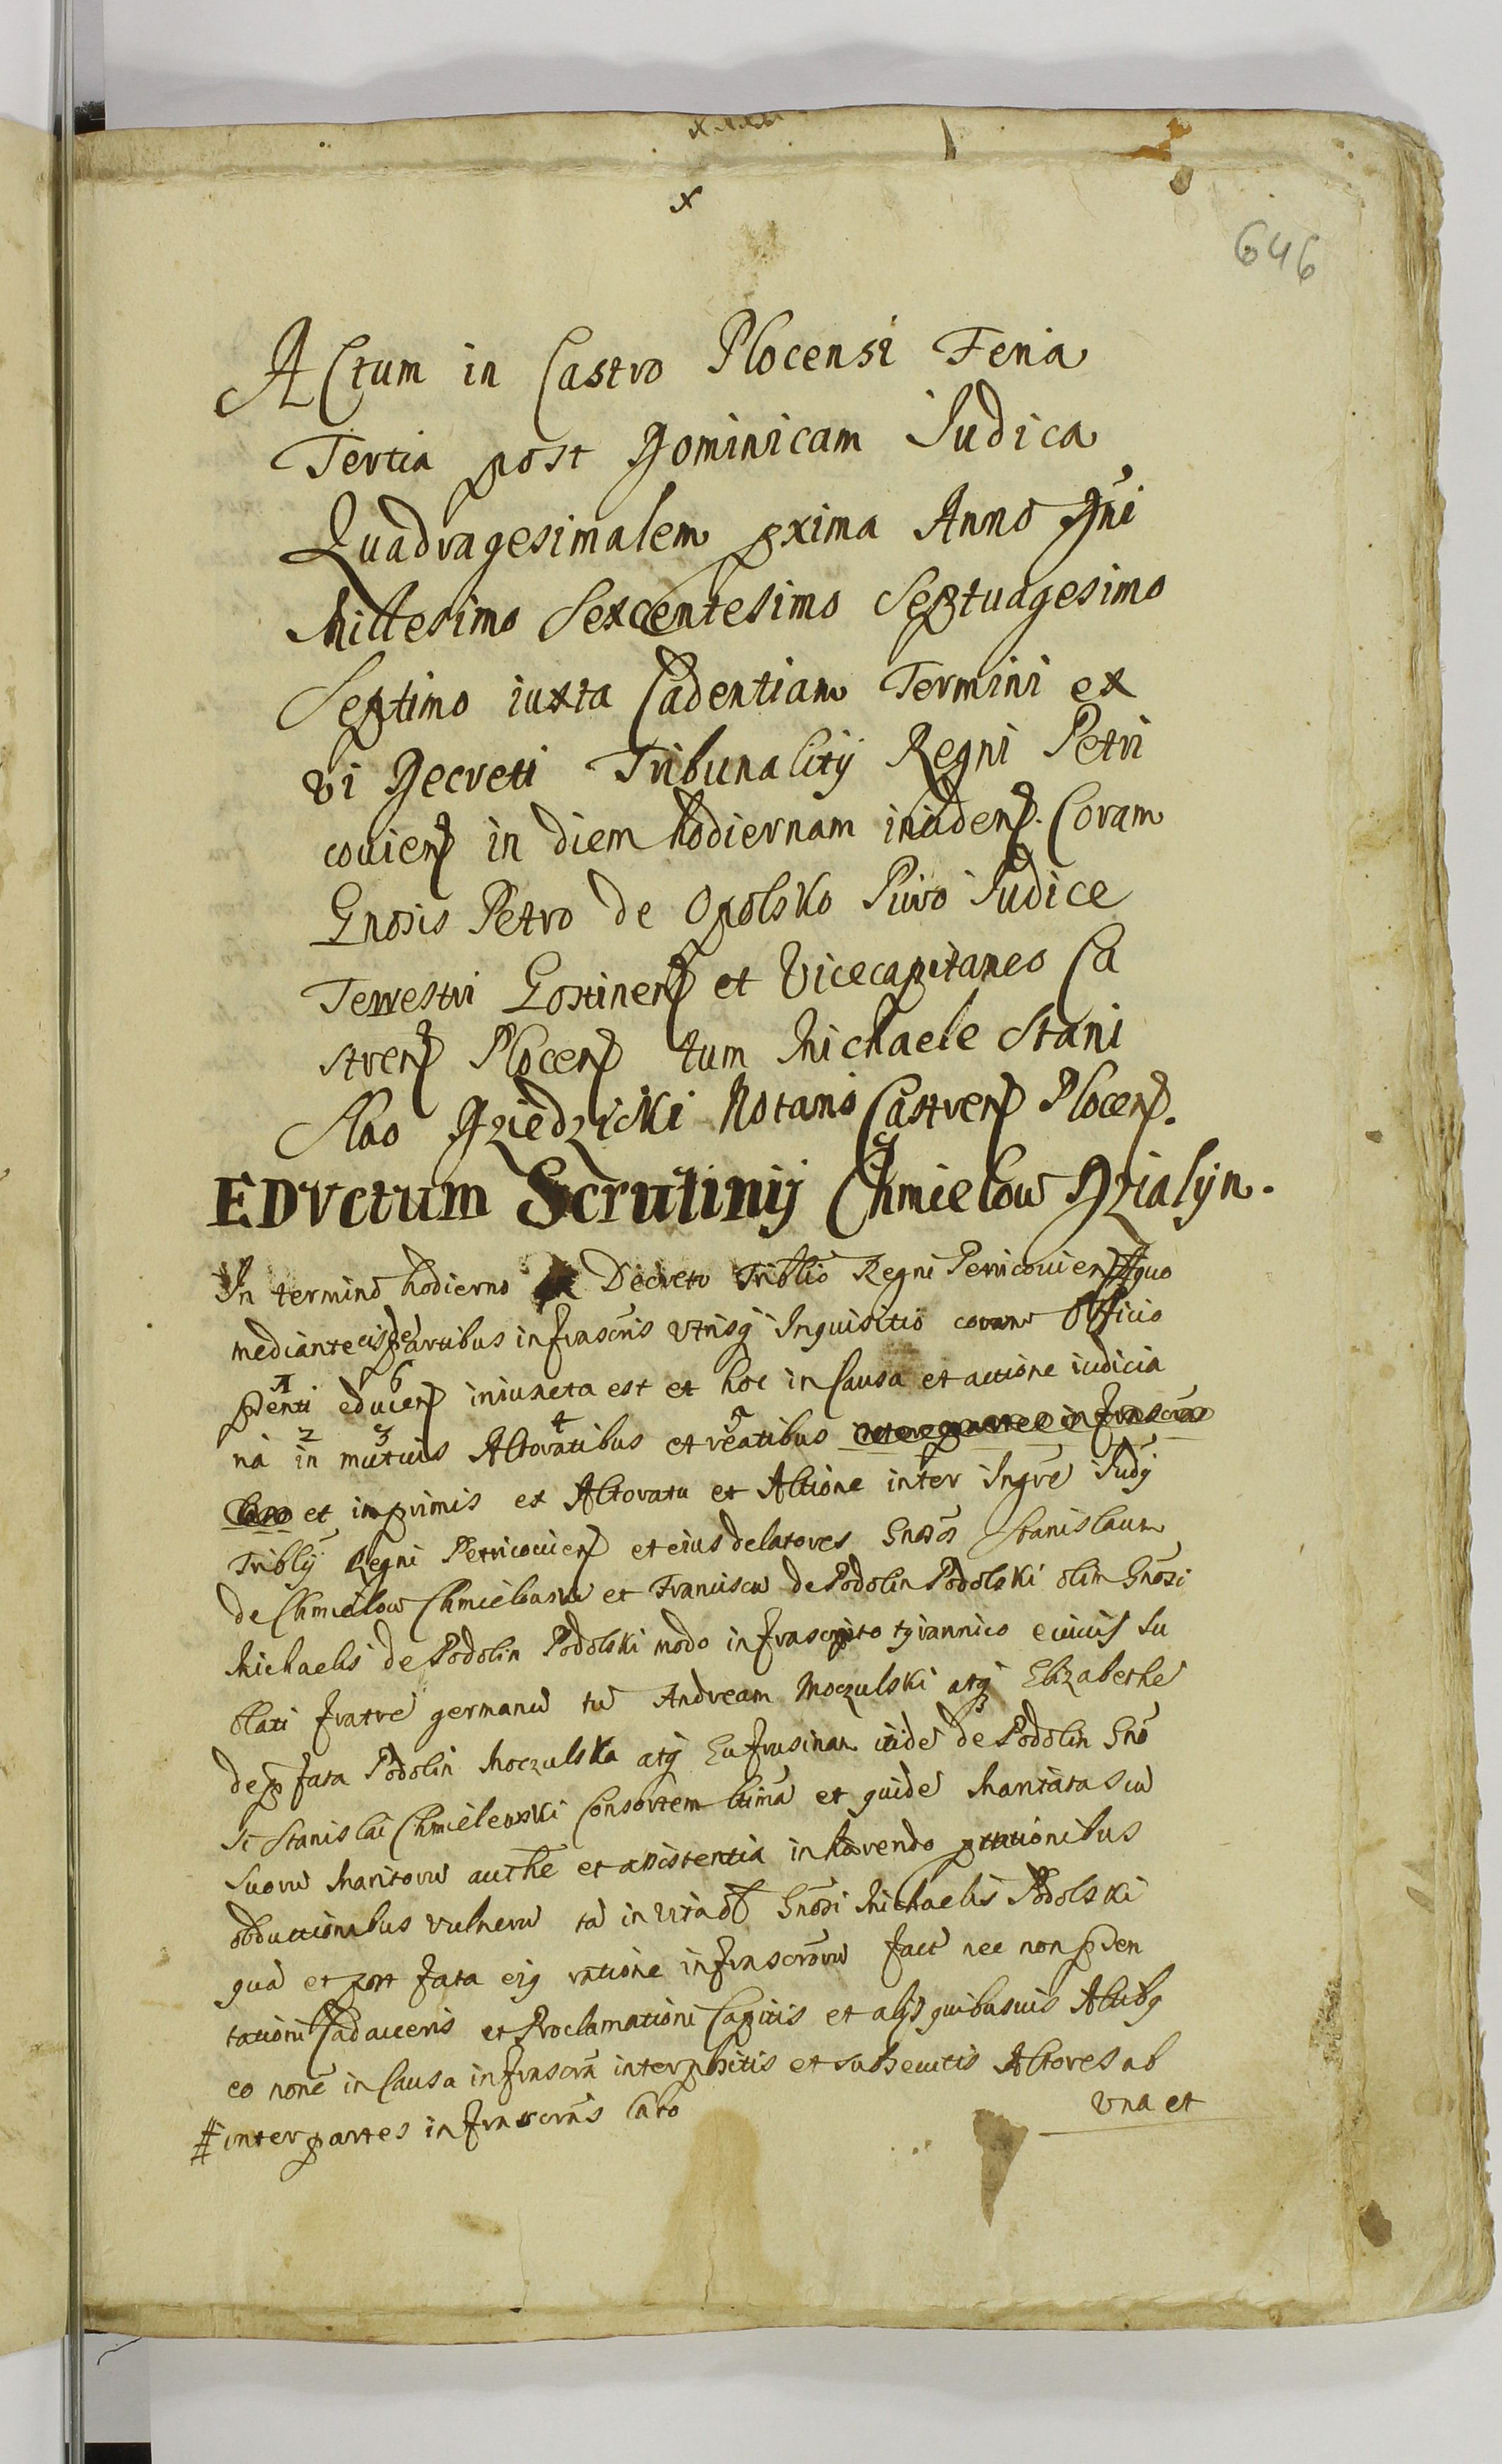 x
646
ACtum in Castro Plocensi Feria
Tertia post Dominicam Iudica
Quadragesimalem pxima Anno Dni
Millesimo Sexcentesimo Septuagesimo
Septimo iuxta Cadentiam Termini ex
vi Decreti Tribunalitij Regni Petri
couien in diem hodiernam inciden. Coram
Gnosis Petro de Opolsko Piwo Iudice
Terrestri Gostinen et Vicecapitaneo Ca
stren Plocen tum Michaele Stani
slao Dziedzicki Notario Castren Plocen.
EDVctum Scrutinij Chmielow Dzialyn.
In termino hodierno Decreto Triblio Regni Petricouien quo
mediante eisde partibus infrascris vtrisq Inquisitio coram Officio
1 6
pnti educen iniuncta est et hoc in Causa et actione iudicia
2 3 4 5
na in mutuis Actoratibus et reatibus
et inprimis ex Actoratu et Actione inter Ingre Iudij
Triblij Regni Petricouien et eius delatores Gnosos Stanislaum
de Chmielow Chmielowski et Franciscu de Podolin Podolski olim Gnosi
Michaelis de Podolin Podolski modo infrascripto tyrannico e viuis su
blati fratre germanu tu Andream Moczulski atq Elizabethe
de pfata Podolin Moczulska atq Eufrusinam itide de Podolin Gno
si Stanislai Chmielewski Consortem ltima et quide Maritatascu
suoru Maritoru authe et assistentia inhærendo pttationibus
obductionibus vulneru ta in vita Gnosi Michaelis Podolski
qua et post fata eiq ratione infrascroru fact nec non pden
tationi Cadaueris et Proclamationi Capitis et alijs quibusuis Actibq
eo none in Causa infrascra interpositis et subsecutis Actores ab
vna et
# inter partes infrascras Lato